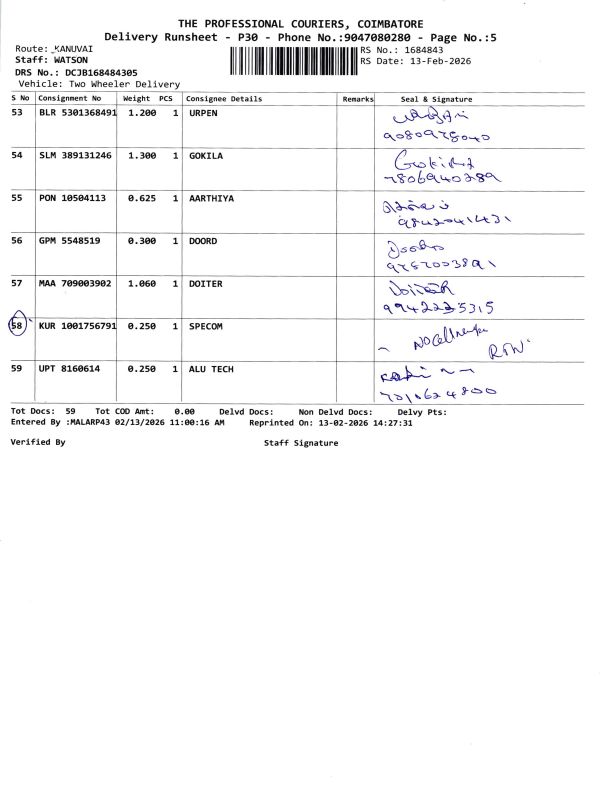 THE PROFESSIONAL COURIERS, COIMBATORE
Delivery Runsheet - P30 - Phone No.:9047080280 - Page No.:5
Route: KANUVAI
RS No.: 1684843
Staff: WATSON
RS Date: 13-Feb-2026
DRS No.: DCJB168484305
Vehicle: Two Wheeler Delivery
S No Consignment No Weight PCS Consignee Details Remarks Seal & Signature
53 BLR 5301368491 1.200 1 URPEN
9080978040
54 SLM 389131246 1.300 1 GOKILA Gokila
7806940289
55 PON 10504113 0.625 1 AARTHIYA
9842041431
56 GPM 5548519 0.300 1 DOORD
57 MAA 709003902 1.060 1 DOITER
9942225315
58 KUR 1001756791 0.250 1 SPECOM
59 UPT 8160614 0.250 1 ALU TECH
Tot Docs: 59 Tot COD Amt: 0.00 Delvd Docs: Non Delvd Docs: Delvy Pts:
Entered By :MALARP43 02/13/2026 11:00:16 AM Reprinted On: 13-02-2026 14:27:31
Verified By Staff Signature